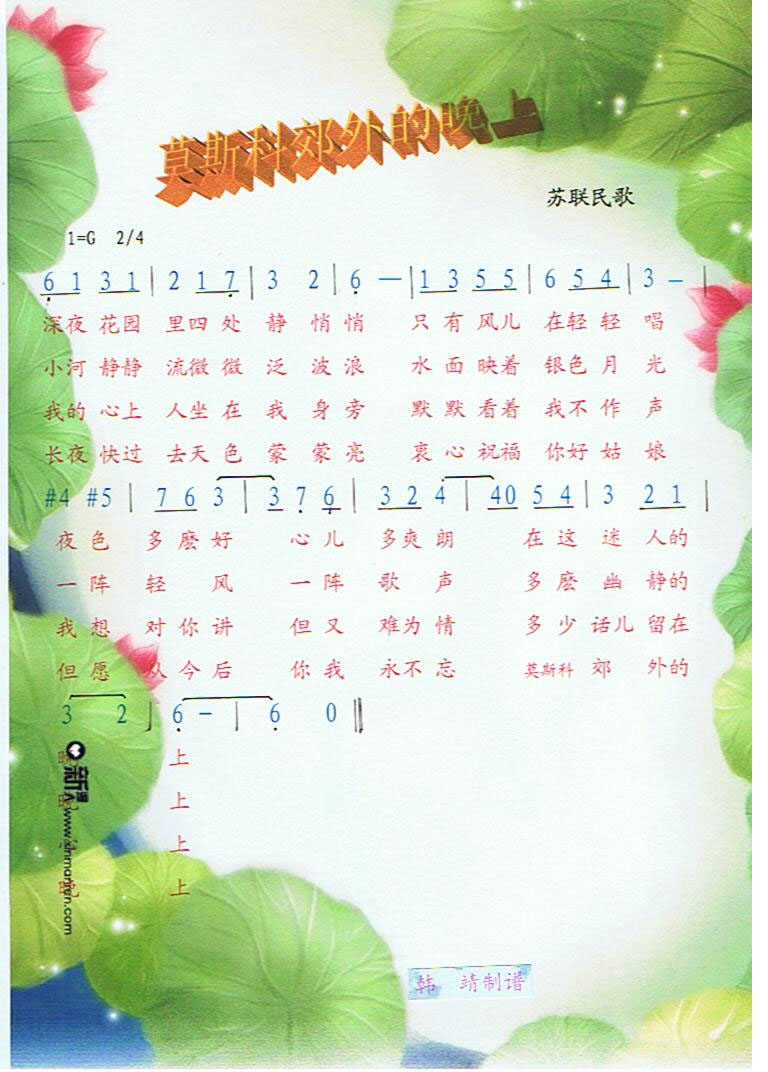 莫斯科郊外的晚上
苏联民歌
1=G 2/4
6 1 3 1 | 2 1 7 | 3 2 | 6 — | 1 3 5 5 | 6 5 4 | 3 — |
深夜 花园 里四 处 静 悄 悄 只 有 风儿 在轻 轻 唱
小河 静静 流微 微 泛 波 浪 水 面 映着 银色 月 光
我的 心上 人坐 在 我 身 旁 默 默 看着 我不 作 声
长夜 快过 去天 色 蒙 蒙 亮 衷 心 祝福 你好 姑 娘
#4 #5 | 7 6 3 | 3 7 6 | 3 2 4 | 40 5 4 | 3 2 1 |
夜 色 多 麽 好 心 儿 多爽 朗 在 这 迷 人的
一 阵 轻 风 一 阵 歌 声 多 麽 幽 静的
我 想 对 你 讲 但 又 难为 情 多 少 话儿 留在
但 愿 从 今 后 你 我 永不 忘 莫斯科 郊 外的
3 2 | 6 — | 6 0 ‖
上
上
上
晚 上
www.xinmanren.com
韩 靖制谱